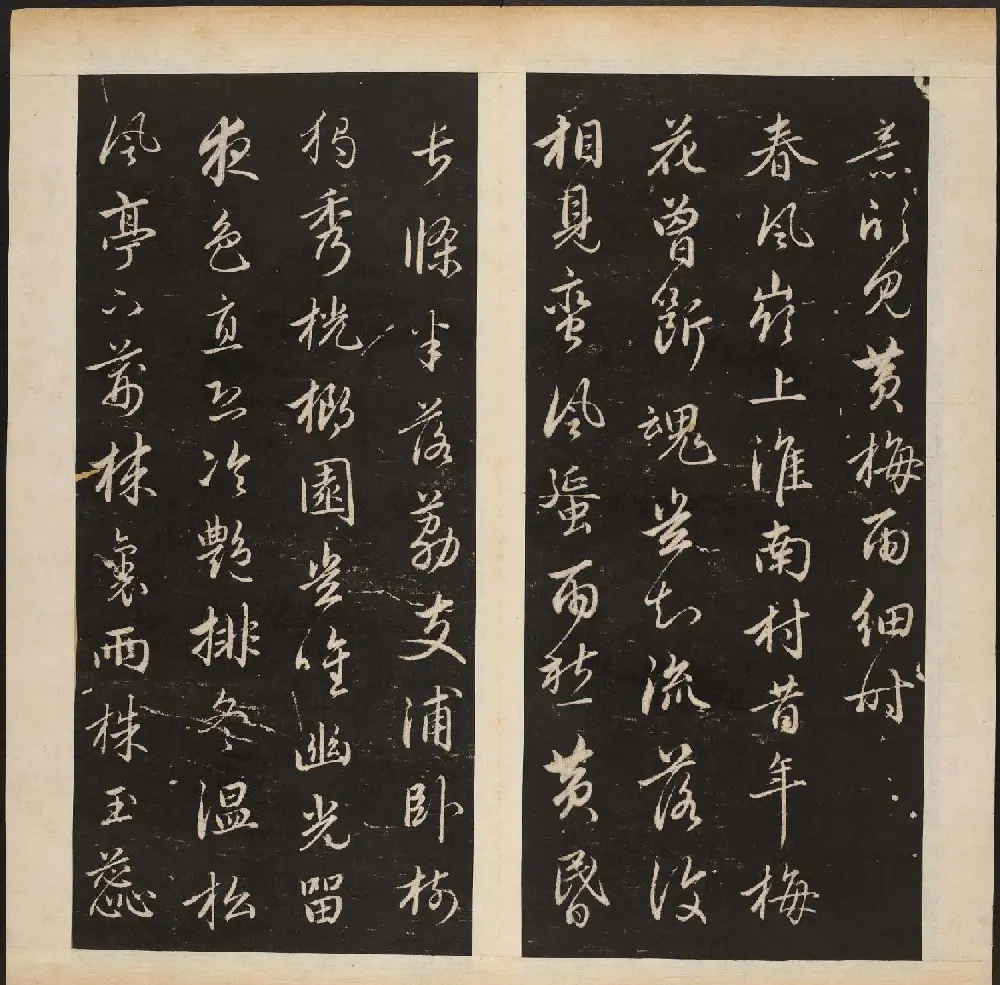 意欲見黄梅雨細時
春風嶺上淮南村昔年梅
花曾斷魂豈知流落復
相見蠻風蜑雨愁黄昏
長條半落荔支浦卧樹
獨秀桄榔園豈唯幽光留
夜色直恐冷艶排冬温松
風亭下荊棘裏兩株玉蕊